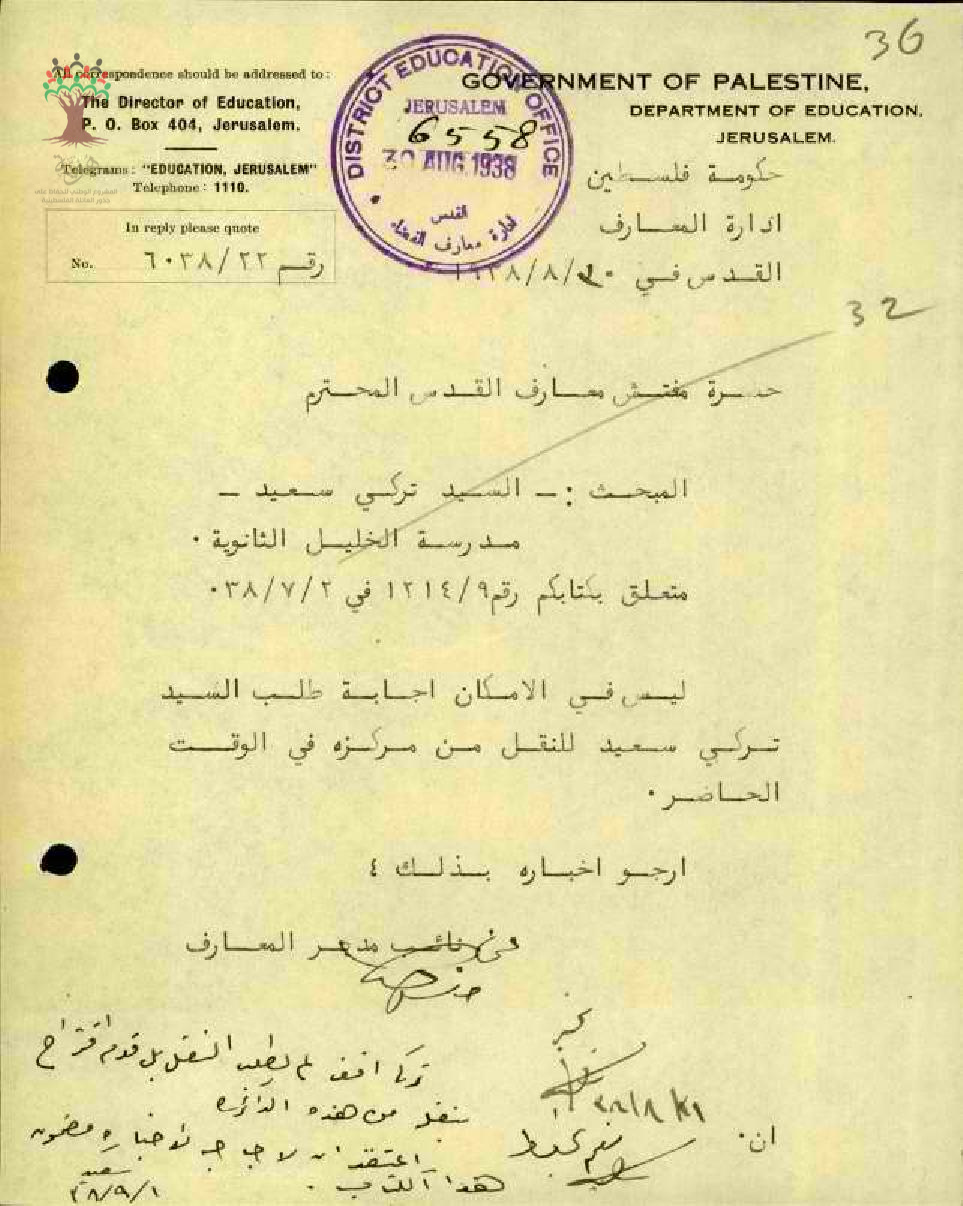 36
All correspondence should be addressed to:
The Director of Education,
P. O. Box 404, Jerusalem.
Telegrams: "EDUCATION, JERUSALEM"
Telephone: 1110.
In reply please quote
No. رقم ٦٠٣٨/٢٢
DISTRICT EDUCATION OFFICE
JERUSALEM
6558
30 AUG. 1938
القدس
GOVERNMENT OF PALESTINE,
DEPARTMENT OF EDUCATION,
JERUSALEM.
حكومة فلسطين
ادارة المعارف
القدس في ٣٠/٨/١٩٣٨
32
حضرة مفتش معارف القدس المحترم
المبحث :ـ السيد تركي سعيد ـ
مدرسة الخليل الثانوية ٠
متعلق بكتابكم رقم ١٢١٤/٩ في ٣٨/٧/٢٠
ليس في الامكان اجابة طلب السيد
تركي سعيد للنقل من مركزه في الوقت
الحاضر ٠
ارجو اخباره بذلك ٤
نائب مدير المعارف
تركي افندي لم يطلب النقل بل قدم اقتراح
بنقله من هذه الدائرة
اعتقد ان لا حاجة لاخباره مضمون
هذا الكتاب .
٣٨/٩/١
٣٨/٨/٣١